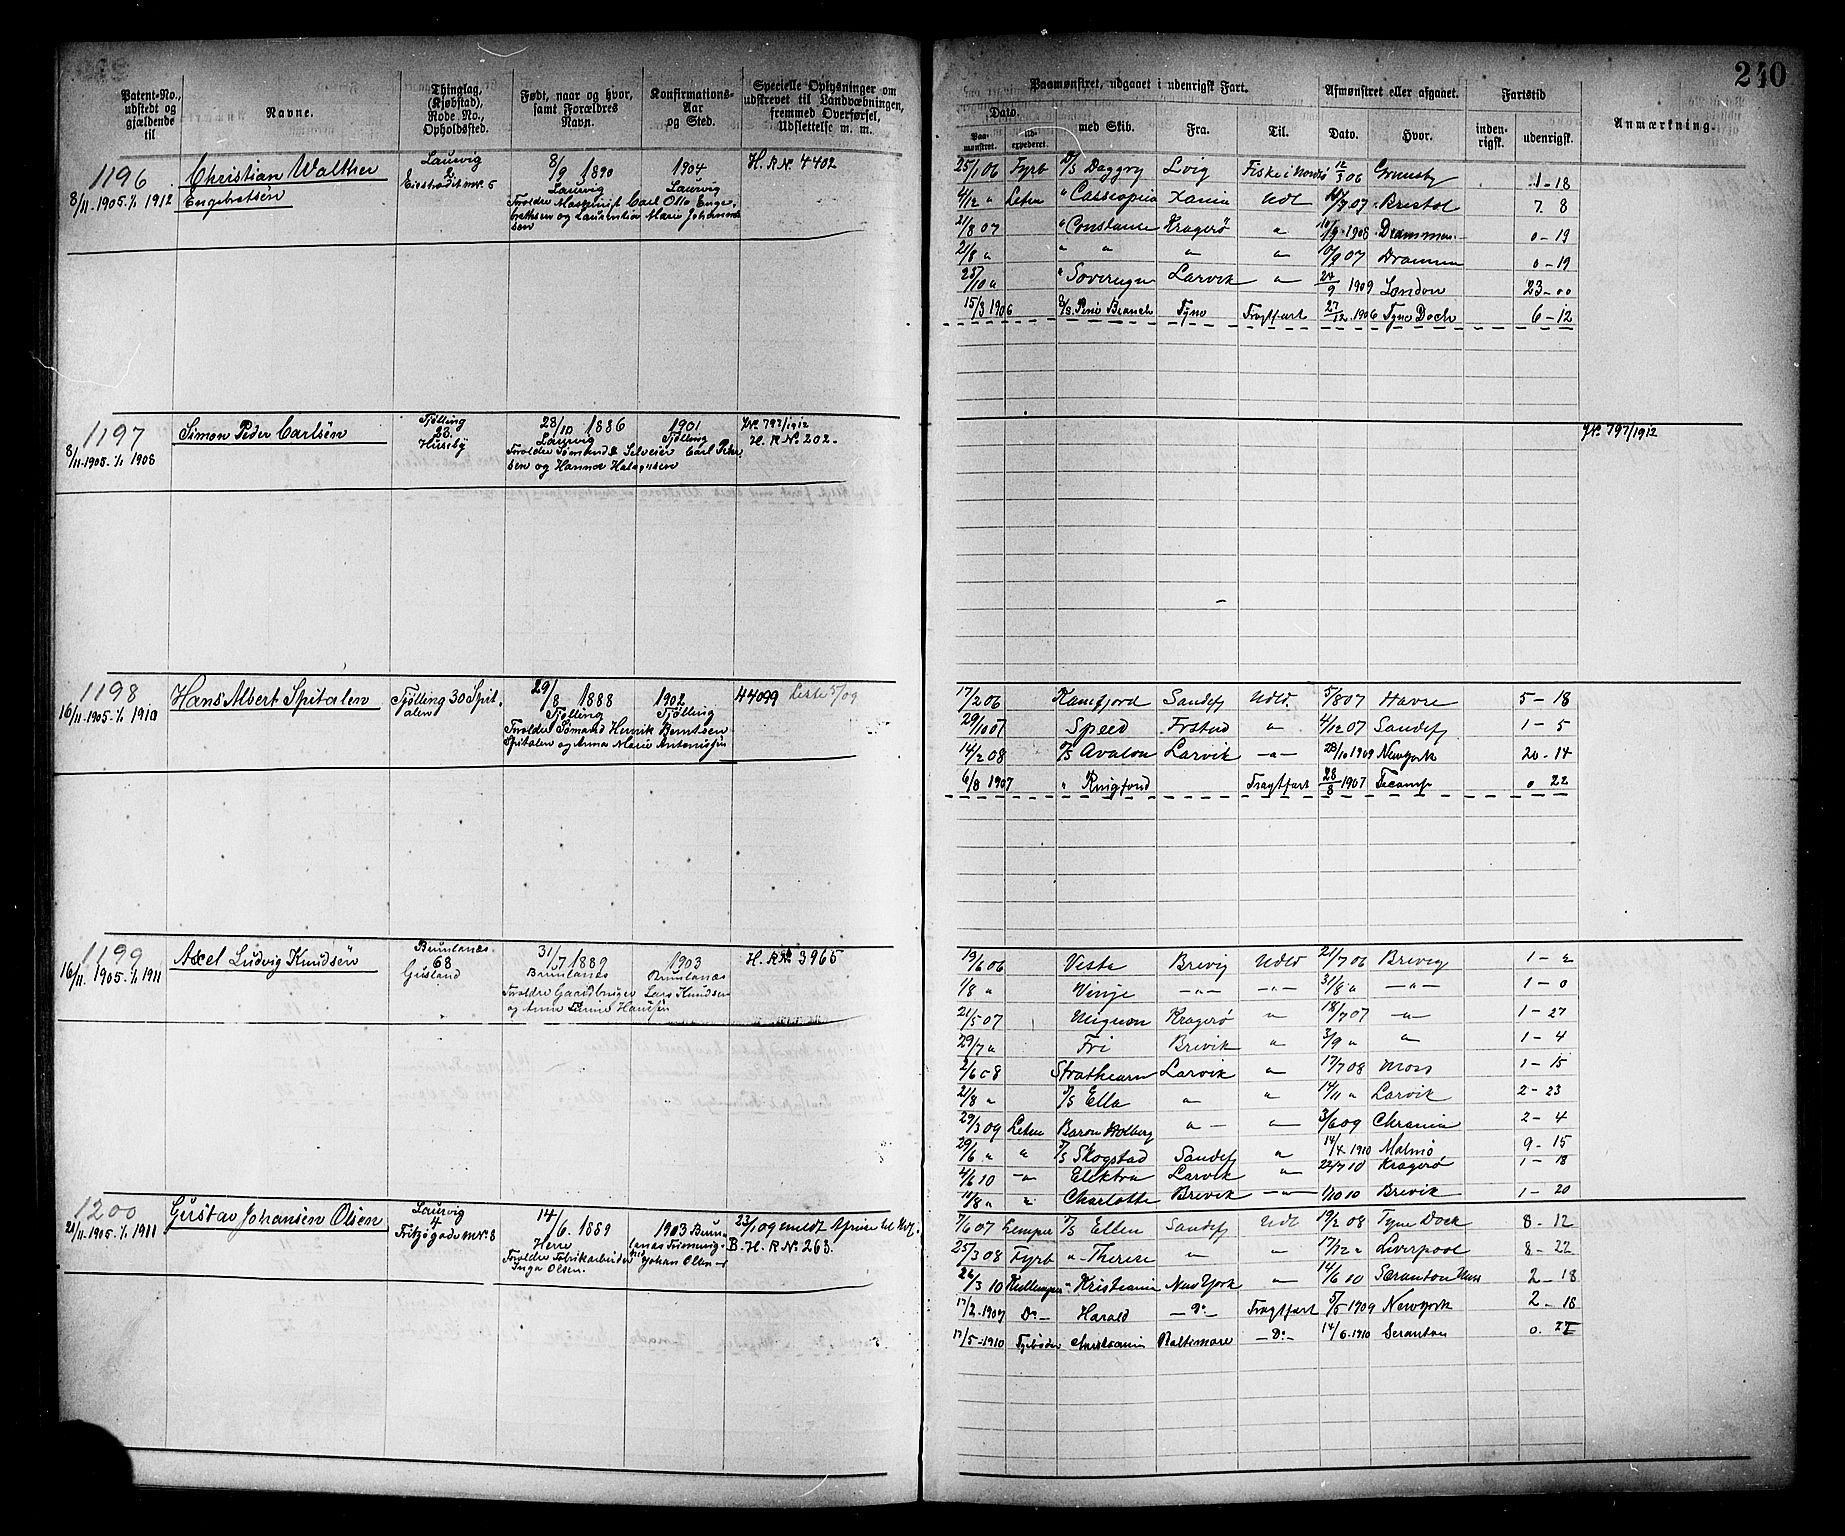 240
Patent-No., udstedt og gjældende til
Navne.
Thinglag, (Kjøbstad), Rode No., Opholdssted.
Født, naar og hvor, samt Forældres Navn.
Konfirmations-Aar og Sted.
Specielle Oplysninger om udstrevet til Landvæbningen, fremmed Overførsel, Udslettelse m. m.
Paamønstret, udgaaet i udenrigsk Fart.
Dato.
Paamønstret.
med Skib.
Fra.
Til.
Afmønstret eller afgaaet.
Dato.
Hvor.
Fartstid
indenrigsk.
udenrigsk.
Anmærkning.
1196
8/11.1905.1/1 1912
Christian Walther
Engebretsen
Laurvig
2
8/9 1890
Laurvig
Forældre Maskinist Carl Otto Enge-
brethsen og Laurentia Marie Johannes-
sen
1904
Laurvig
H.R.No. 4402
25/1 06 Fyrb D/S Daggry Lvig Fiske i Nords 12/3 06 Grimsby 1-18
4/12 " Cassiopeia Xania Udl 07 Bristol 7. 8
21/8 07 " Constance Kragerø " 10/9 1908 Drammen 0-19
21/8 " " " " " 10/9 07 Drammen 0-19
25/10 " " Sovereign Larvik " 24/9 1909 London 23-00
15/3 1906 Branch Tyne Fragtfart 27/12 1906 Tyne Dock 6-12
1197
8/11.1905.1/1 1908
Simon Peder Carlsen
Tjølling
23
Huseby
28/10 1886
Laurvig
Carl Peter-
sen og Hanna
1901
Tjølling
No 797/1912
H.R.No. 202.
No 797/1912
1198
16/11.1905.1/1 1910
Hans Albert Spitalen
Tjølling 30 Spit-
alen
29/8 1888
Tjølling
Forældre Sømand Henrik Berntsen
Spitalen og Anna Marie Antonisen
1902
Tjølling
44099 Liste 5/09
17/2 06 Ranefjord Sandef Udld. 5/8 07 Havre 5-18
29/10 07 Speed Frstad " 4/12 07 Sandef 1-5
14/2 08 D/S Avalon Larvik -"- 28/10 1909 Newyork 20-14
6/8 1907 " Ringfond Fragtfart 28/8 1907 Fecamp 0 22
1199
16/11.1905.1/1 1911
Axel Ludvig Knudsen
Brunlanæs
68
Gusland
31/7 1889
Brunlanæs
Forældre Gaardbruger Lars Knudsen
og Anne Hansen
1903
Brunlanæs
H.R.No. 3965
19/6 06 Vesta Brevig Udld 21/7 06 Brevig 1-2
1/8 " Vinje -"- -"- 31/8 " -"- 1-0
21/5 07 Mignon Kragerø " 18/7 07 -"- 1-27
29/7 " Fri Brevik " 3/9 " " 1-4
2/6 08 Strathearn Larvik " 17/7 08 Moss 1-15
21/8 " D/S Ella " " 14/11 " Larvik 2-23
29/3 09 Baron Holberg " - 3/6 09 Chrania 2-4
29/6 " " D/S Skogstad Sandef " 14/4 1910 Malmø 9-15
4/6 10 -" Elektra Larvik " 22/7 10 Kragerø 1-18
11/8 " " Charlotte Brevik -"- 1/10 10 Brevik 1-20
1200
21/11.1905.1/1 1911
Gustav Johansen Olsen
Laurvig
4
Fritzøgade No. 8
14/6. 1889
Herre
Forældre Fabrikarbeider Johan Olsen
Inga Olsen.
1903 Brun-
lanæs
23/1 09 meldt
B.H.R.No. 263.
7/6 07 Lemper D/S Ellen Sandef Udl 19/2 08 Tyne Dock 8-12
25/3 08 Fyrb " Therese " " 17/12 " Liverpool 8-22
26/3 10 " Kristiania New York " 14/6 10 Scranton 2-18
17/2.1909 Do- Harald -Do- Fragtfart 5/5 1909 Newyork 2-18
17/5-1910 Fyrbøder Christiania Baltimore -Do- 14/6.1910 Scranton